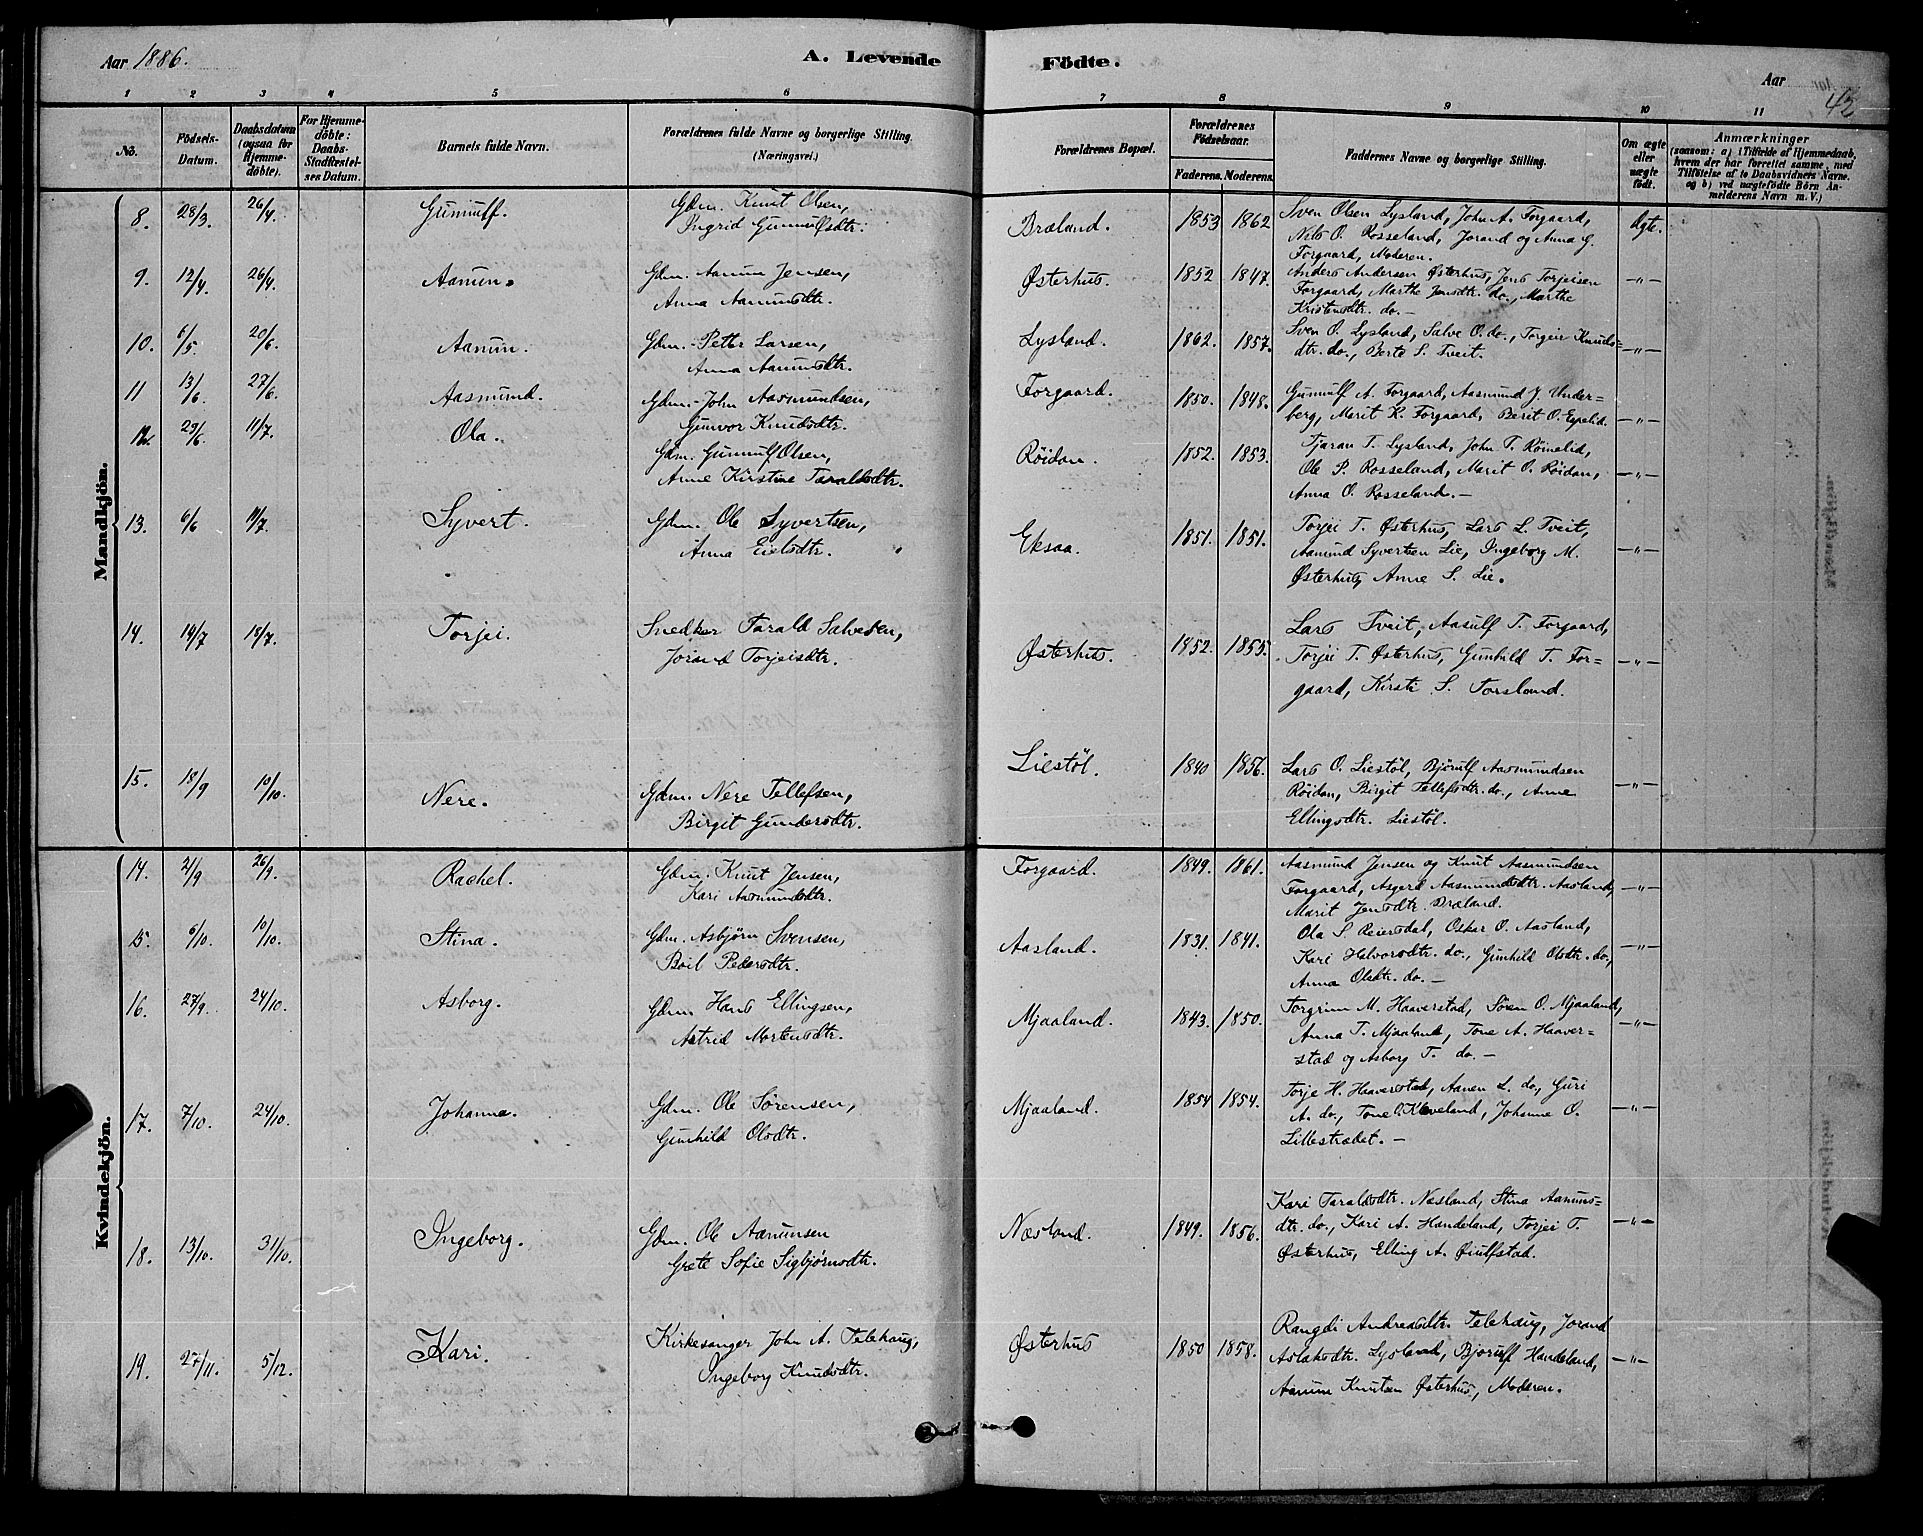 Aar 1886.
A. Levende
Födte.
Aar
42
1 2 3 4 5 6
7 8 9 10 11
No.
Födsels-
Datum.
Daabsdatum
(ogsaa for
Hjemme-
döbte).
For Hjemme-
döbte:
Daabs-
Stadfæstel-
ses Datum.
Barnets fulde Navn.
Forældrenes fulde Navne og borgerlige Stilling.
(Næringsvei.)
Forældrenes Bopæl.
Forældrenes
Födselsaar.
Faderens. Moderens.
Faddernes Navne og borgerlige Stilling.
Om ægte
eller
uægte
födt.
Anmærkninger
(saasom: a) i Tilfælde af Hjemmedaab,
hvem der har forrettet samme, med
Tilföielse af to Daabsvidners Navne.
og b) ved uægtefödte Börn An-
melderens Navn m. V.)
Mandkjön.
8. 28/3. 26/4. Gunnulf. Gdm. Knut Olsen,
Ingrid Gunnulfsdtr.
Bræland. 1853 1862 Sven Olsen Lysland, John A. Forgaard,
Nils O. Rosseland, Jorand og Anna G.
Forgaard, Moderen.
Ægte.
9. 12/4. 26/4. Aanun. Gdm. Aanun Jensen,
Anna Aanunsdtr.
Østerhus. 1852 1847. Anders Andersen Østerhus, Jens Torjeisen
Forgaard, Marthe Jensdtr. do., Marthe
Kristensdtr. do. –
–"–
10. 6/5. 20/6. Aanun. Gdm. Petter Larsen,
Anna Aanunsdtr.
Lysland. 1862. 1857. Sven O. Lysland, Salve O. do., Torgeir Knuds=
dtr. do., Berte S. Tveit.
–"–
11 13/6. 27/6. Aasmund. Gdm. John Aasmundsen,
Gunvor Knudsdtr.
Forgaard. 1850. 1848. Gunnulf A. Forgaard, Aasmund J. Under=
berg, Marit K. Forgaard, Berit O. Espelid.
–"–
12. 29/6. 11/7. Ola. Gdm. Gunnulf Olsen,
Anne Kirstine Taraldsdtr.
Røidan. 1852. 1853. Tjaran T. Lysland, John T. Rømelid,
Ole P. Rosseland, Marit O. Røidan,
Anna O. Rosseland. –
–"–
13. 6/6 11/7. Syvert. Gdm. Ole Syvertsen,
Anna Eielsdtr.
Eksaa. 1851. 1851. Torjei T. Østerhus, Lars L. Tveit,
Aamund Syvertsen Lie, Ingeborg M.
Østerhus, Anne S. Lie.
–"–
14. 14/7 18/7. Torjei. Snedker Tarald Salvesen,
Jorand Torjeisdtr.
Østerhus. 1852. 1855. Lars Tveit, Aasulf T. Forgaard,
Torjei T. Østerhus, Gunhild T. For=
gaard, Kirsti S. Forsland.
–"–
15. 18/9 10/10. Nere. Gdm. Nere Tellefsen,
Birgit Gundersdtr.
Liestöl. 1840 1856. Lars O. Liestöl, Bjørulf Aasmundsen
Røidan, Birgit Tellefsdtr. do., Anne
Ellingsdtr. Liestöl.
–"–
Kvindekjön.
14. 21/9 26/9. Rachel. Gdm. Knut Jensen,
Kari Aasmundsdtr.
Forgaard. 1849. 1861. Aasmund Jensen og Knut Aasmundsen
Forgaard, Asgerd Aasmundsdtr. Aasland,
Marit Jensdtr. Bræland.
–"–
15. 6/10. 10/10. Stina. Gdm. Asbjørn Svensen,
Boil Pedersdtr.
Aasland. 1831. 1841. Ola S. Reiersdal, Oskar O. Aasland,
Kari Halvorsdtr. do., Gunhild Olsdtr. do.,
Anna Olsdtr. do. –
–"–
16. 27/9. 24/10. Asborg. Gdm. Hans Ellingsen,
Astrid Mortensdtr.
Mjaaland. 1843. 1850. Torgrim M. Haaverstad, Søren O. Mjaaland,
Anna T. Mjaaland, Tone A. Haaver=
stad og Asborg T. do. –
–"–
17. 7/10. 24/10. Johanne. Gdm. Ole Sørensen,
Gunhild Olsdtr.
Mjaaland. 1854 1854. Torje H. Haaverstad, Aanen L. do., Guri
A. do., Tone O. Kleveland, Johanne O.
Lillestrædet. –
–"–
18. 13/10. 31/10. Ingeborg. Gdm. Ole Aanunsen
Grete Sofie Sigbjørnsdtr.
Næsland. 1849. 1856. Kari Taraldsdtr. Næsland, Stina Aanuns=
dtr. do., Kari A. Handeland, Torjei T.
Østerhus, Elling A. Øiulfstad.
–"–
19. 27/11. 5/12. Kari. Kirkesanger John A. Telehaug,
Ingeborg Knudsdtr.
Østerhus 1850 1858. Rangdi Andreasdtr. Telehaug, Jorand
Aslaksdtr. Lysland, Bjørulf Handeland,
Aanun Knutsen Østerhus, Moderen.
–"–